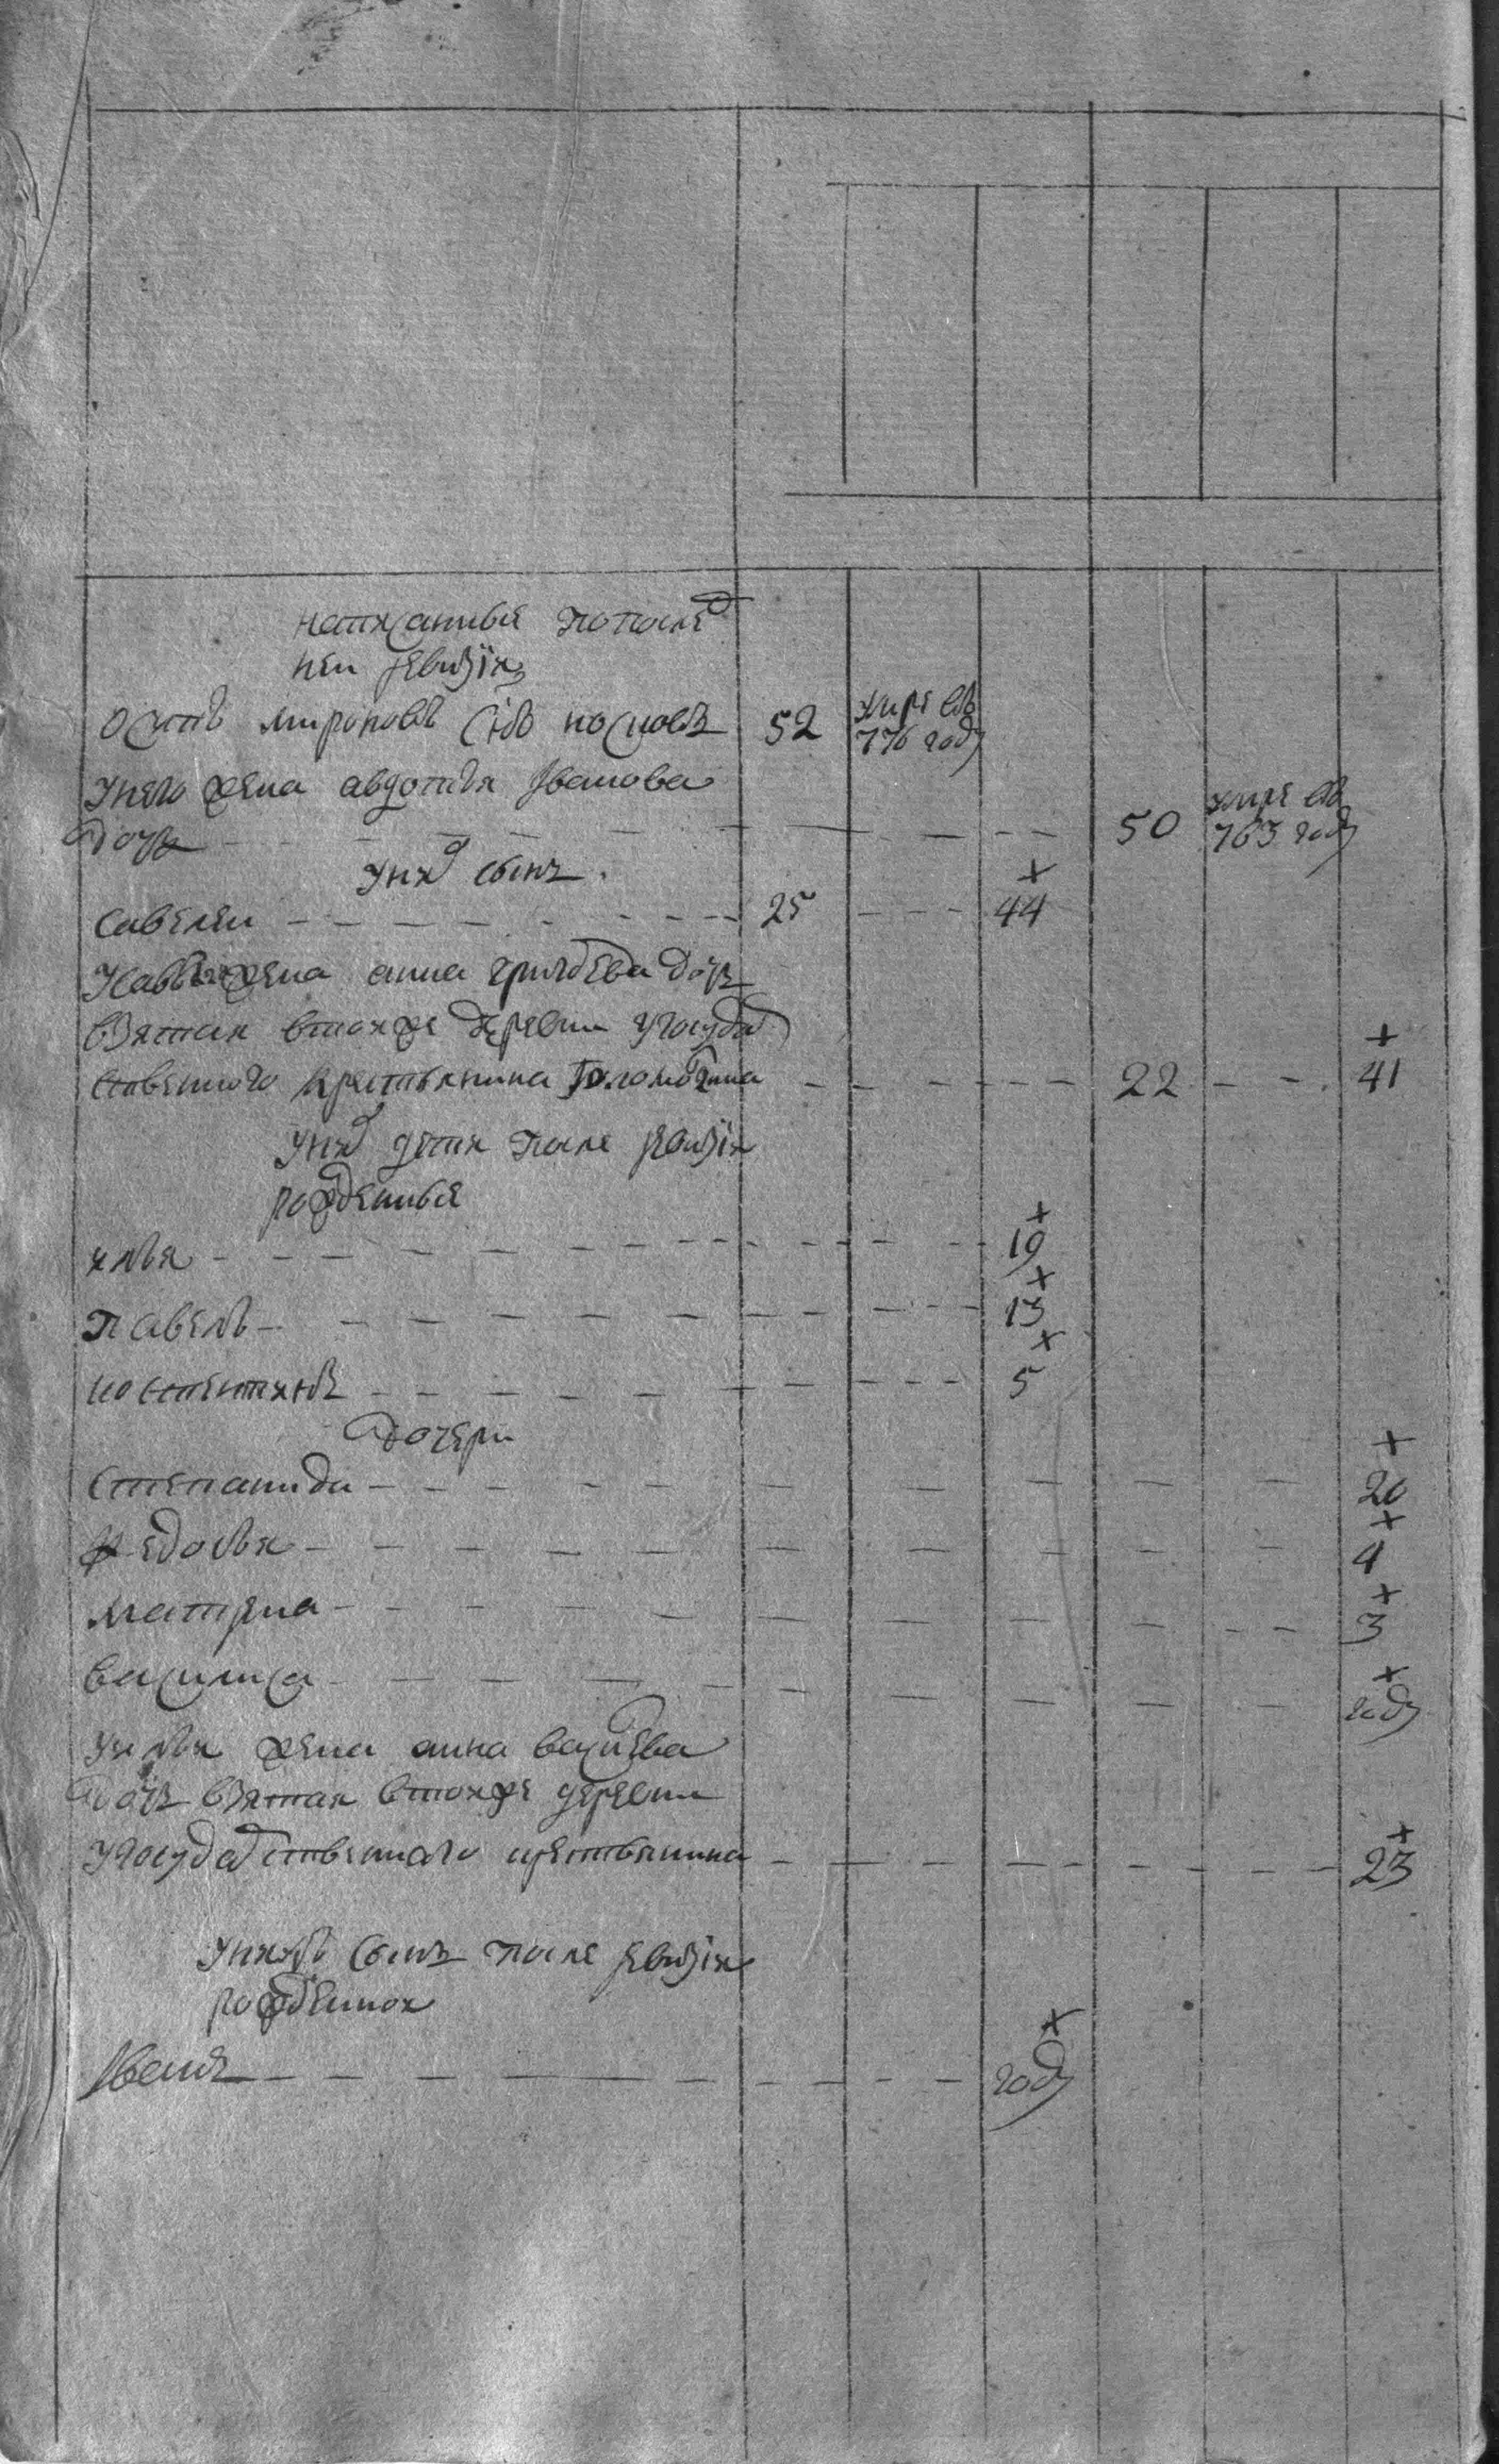 написанныя по послѣд
ней ревизiи
Осипъ мироновъ сынъ носковъ 52 умре въ 776 году
унего жена авдотья Iванова
дочь 50 умре въ 763 году
уних сынъ
савелеи 25 44
жена анна дочь
взятая втоиже деревни угосудар
ственного крестьянина 22 41
уних дети после ревизiи
рожденныя
илья 19
павелъ 13
костентинъ 5
дочери
степанида 20
федосья 4
матрена 3
василиса году
уильи жена анна васильева
дочь взятая втоиже деревни
угосударственнаго крестьянина 23
унихъ сынъ после ревизiи
рожденнои
Iванъ году